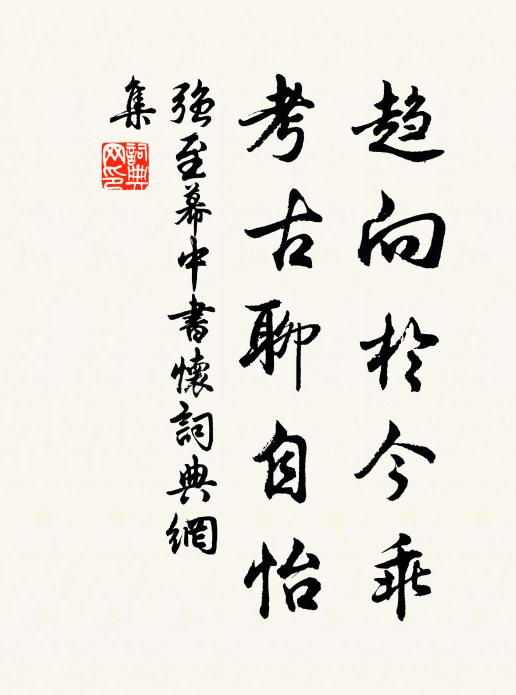 趋向於今乖
考古聊自怡
強至幕中書懷詞典網
集
詞典网印